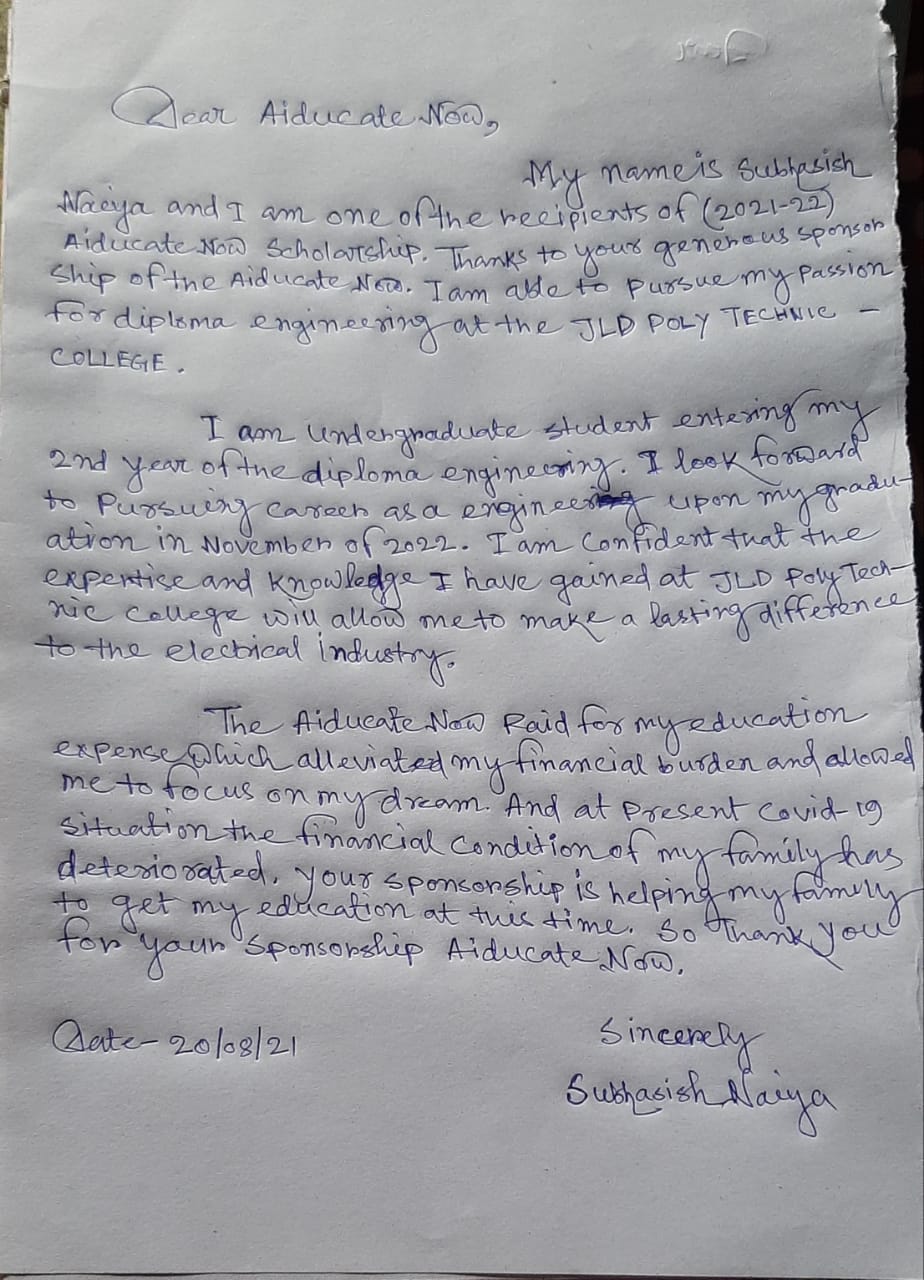 Dear Aiducate Now,
My name is Subhasish
Naiya and I am one of the recipients of (2021-22)
Aiducate Now Scholarship. Thanks to your generous sponsor
ship of the Aiducate Now. I am able to pursue my passion
for diploma engineering at the JLD POLY TECHNIC -
COLLEGE.
I am undergraduate student entering my
2nd year of the diploma engineering. I look forward
to pursuing career as a engineer upon my gradu-
ation in November of 2022. I am confident that the
expertise and knowledge I have gained at JLD Poly Tech-
nic College will allow me to make a lasting difference
to the electrical industry.
The Aiducate Now Paid for my education
expense which alleviated my financial burden and allowed
me to focus on my dream. And at present covid-19
situation the financial condition of my family has
deteriorated. your sponsorship is helping my family
to get my education at this time. So Thank you
for your sponsorship Aiducate Now.
Date- 20/08/21
Sincerely
Subhasish Naiya